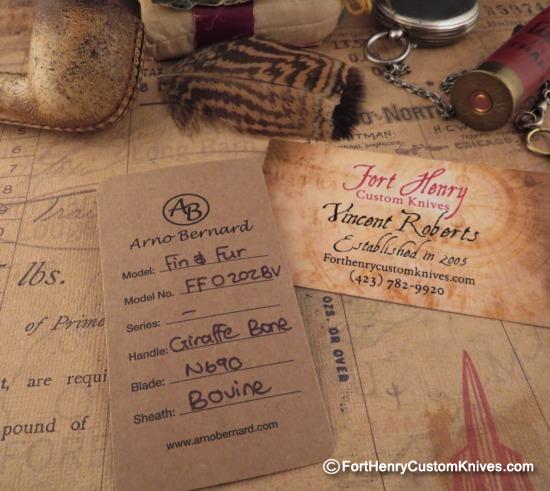 AB
Arno Bernard
Model: Fin & Fur
Model No. FF0202BV
Series: –
Handle: Giraffe Bone
Blade: N690
Sheath: Bovine
www.arnobernard.com
Fort Henry
Custom Knives
Vincent Roberts
Established in 2005
Forthenrycustomknives.com
(423) 782-9920
15974
lbs.
of Prime
t, are requi
pound of
OZS. OR OVER
©FortHenryCustomKnives.com